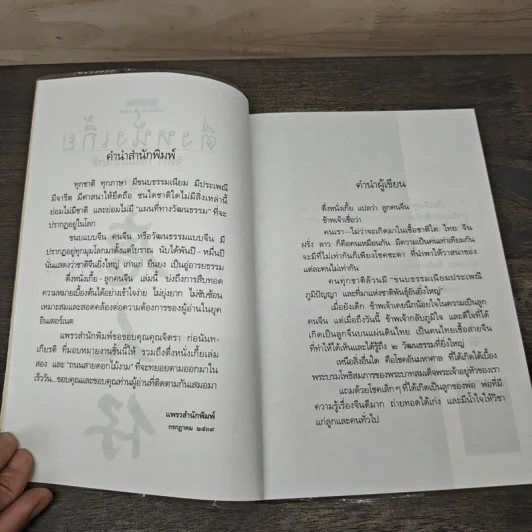 คำนำสำนักพิมพ์
ทุกชาติ ทุกภาษา มีขนบธรรมเนียม มีประเพณี
มีจารีต มีศาสนาให้ยึดถือ ชนใดชาติใดไม่มีสิ่งเหล่านี้
ย่อมไม่มีชาติ และย่อมไม่มี "แผนที่ทางวัฒนธรรม" ที่จะ
ปรากฏอยู่ในโลก
ชนบแบบจีน คนจีน หรือวัฒนธรรมแบบจีน มี
ปรากฏอยู่ทุกมุมโลกมาตั้งแต่โบราณ นับได้พันปี - หมื่นปี
นั่นแสดงว่าชาติจีนยิ่งใหญ่ เก่าแก่ ยืนยง เป็นอู่อารยธรรม
ตึ่งหนังเกี้ย - ลูกคนจีน เล่มนี้ บ่งถึงการสืบทอด
ความหมายเบื้องต้นได้อย่างเข้าใจง่าย ไม่ยุ่งยาก ไม่ซับซ้อน
เหมาะสมและสอดคล้องต่อความต้องการของผู้อ่านในยุค
อินเตอร์เนต
แพรวสำนักพิมพ์ขอขอบคุณคุณจิตรา ก่อนันท-
เกียรติ ที่มอบหมายงานชิ้นนี้ให้ รวมถึงตึ่งหนังเกี้ยเล่ม
สอง และ "ถนนสายดอกไม้งาม" ที่จะทยอยตามออกมาใน
เร็ววัน...ขอบคุณและขอบคุณท่านผู้อ่านที่ติดตามกันเสมอมา
แพรวสำนักพิมพ์
กรกฎาคม ๒๕๓๙
คำนำผู้เขียน
ตึ่งหนังเกี้ย แปลว่า ลูกคนจีน
ข้าพเจ้าเชื่อว่า
คนเรา--ไม่ว่าจะเกิดมาในเชื้อชาติใด ไทย จีน
ฝรั่ง ลาว ก็คือคนเหมือนกัน มีความเป็นคนเท่าเทียมกัน
จะมีที่ไม่เท่ากันก็เพียงโชคชะตา ที่นำพาให้วาสนาของ
แต่ละคนไม่เท่ากัน
คนทุกชาติล้วนมี "ขนบธรรมเนียมประเพณี
ภูมิปัญญา และที่มาแห่งชาติพันธุ์อันยิ่งใหญ่"
เมื่อยังเด็ก ข้าพเจ้าเคยนึกน้อยใจในความเป็นลูก
คนจีน แต่เมื่อถึงวันนี้ ข้าพเจ้ากลับภูมิใจ และดีใจที่ได้
เกิดเป็นลูกจีนบนแผ่นดินไทย เป็นคนไทยเชื้อสายจีน
ที่ทำให้ได้เห็นและได้รู้ถึง ๒ วัฒนธรรมที่ยิ่งใหญ่
เหนือสิ่งอื่นใด คือโชคอันมหาศาล ที่ได้เกิดใต้เบื้อง
พระบรมโพธิสมภารของพระบาทสมเด็จพระเจ้าอยู่หัวของเรา
แถมด้วยโชคเล็กๆ ที่ได้เกิดเป็นลูกของพ่อ พ่อที่มี
ความรู้เรื่องจีนดีมาก ถ่ายทอดได้เก่ง และมีน้ำใจให้วิชา
แก่ลูกและคนทั่วไป